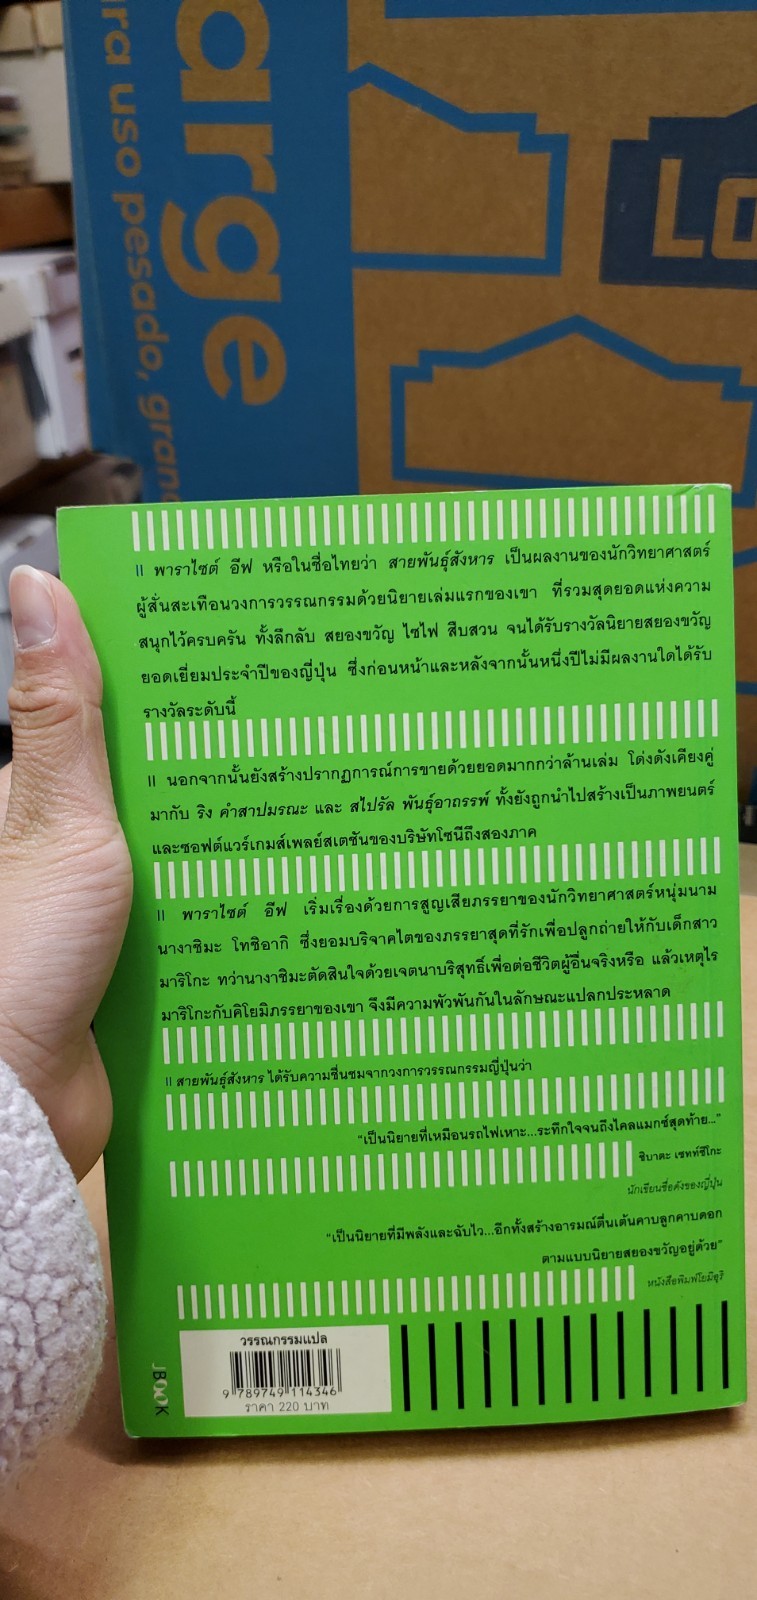 arge
ra uso pesado, grand
LO
|| พาราไซต์ อีฟ หรือในชื่อไทยว่า สายพันธุ์สังหาร เป็นผลงานของนักวิทยาศาสตร์
ผู้สั่นสะเทือนวงการวรรณกรรมด้วยนิยายเล่มแรกของเขา ที่รวมสุดยอดแห่งความ
สนุกไว้ครบครัน ทั้งลึกลับ สยองขวัญ ไซไฟ สืบสวน จนได้รับรางวัลนิยายสยองขวัญ
ยอดเยี่ยมประจำปีของญี่ปุ่น ซึ่งก่อนหน้าและหลังจากนั้นหนึ่งปีไม่มีผลงานใดได้รับ
รางวัลระดับนี้
|| นอกจากนั้นยังสร้างปรากฏการณ์การขายด้วยยอดมากกว่าล้านเล่ม โด่งดังเคียงคู่
มากับ ริง คำสาปมรณะ และ สไปรัล พันธุ์อาถรรพ์ ทั้งยังถูกนำไปสร้างเป็นภาพยนตร์
และซอฟต์แวร์เกมส์เพลย์สเตชันของบริษัทโซนีถึงสองภาค
|| พาราไซต์ อีฟ เริ่มเรื่องด้วยการสูญเสียภรรยาของนักวิทยาศาสตร์หนุ่มนาม
นางาชิมะ โทชิอากิ ซึ่งยอมบริจาคไตของภรรยาสุดที่รักเพื่อปลูกถ่ายให้กับเด็กสาว
มาริโกะ ทว่านางาชิมะตัดสินใจด้วยเจตนาบริสุทธิ์เพื่อต่อชีวิตผู้อื่นจริงหรือ แล้วเหตุไร
มาริโกะกับคิโยมิภรรยาของเขา จึงมีความพัวพันกันในลักษณะแปลกประหลาด
|| สายพันธุ์สังหาร ได้รับความชื่นชมจากวงการวรรณกรรมญี่ปุ่นว่า
“เป็นนิยายที่เหมือนรถไฟเหาะ...ระทึกใจจนถึงไคลแมกซ์สุดท้าย...”
ชิบาตะ เซทท์ซึโกะ
นักเขียนชื่อดังของญี่ปุ่น
“เป็นนิยายที่มีพลังและฉับไว...อีกทั้งสร้างอารมณ์ตื่นเต้นคาบลูกคาบดอก
ตามแบบนิยายสยองขวัญอยู่ด้วย”
หนังสือพิมพ์โยมิอุริ
วรรณกรรมแปล
9 789749 114346
ราคา 220 บาท
JBOOK